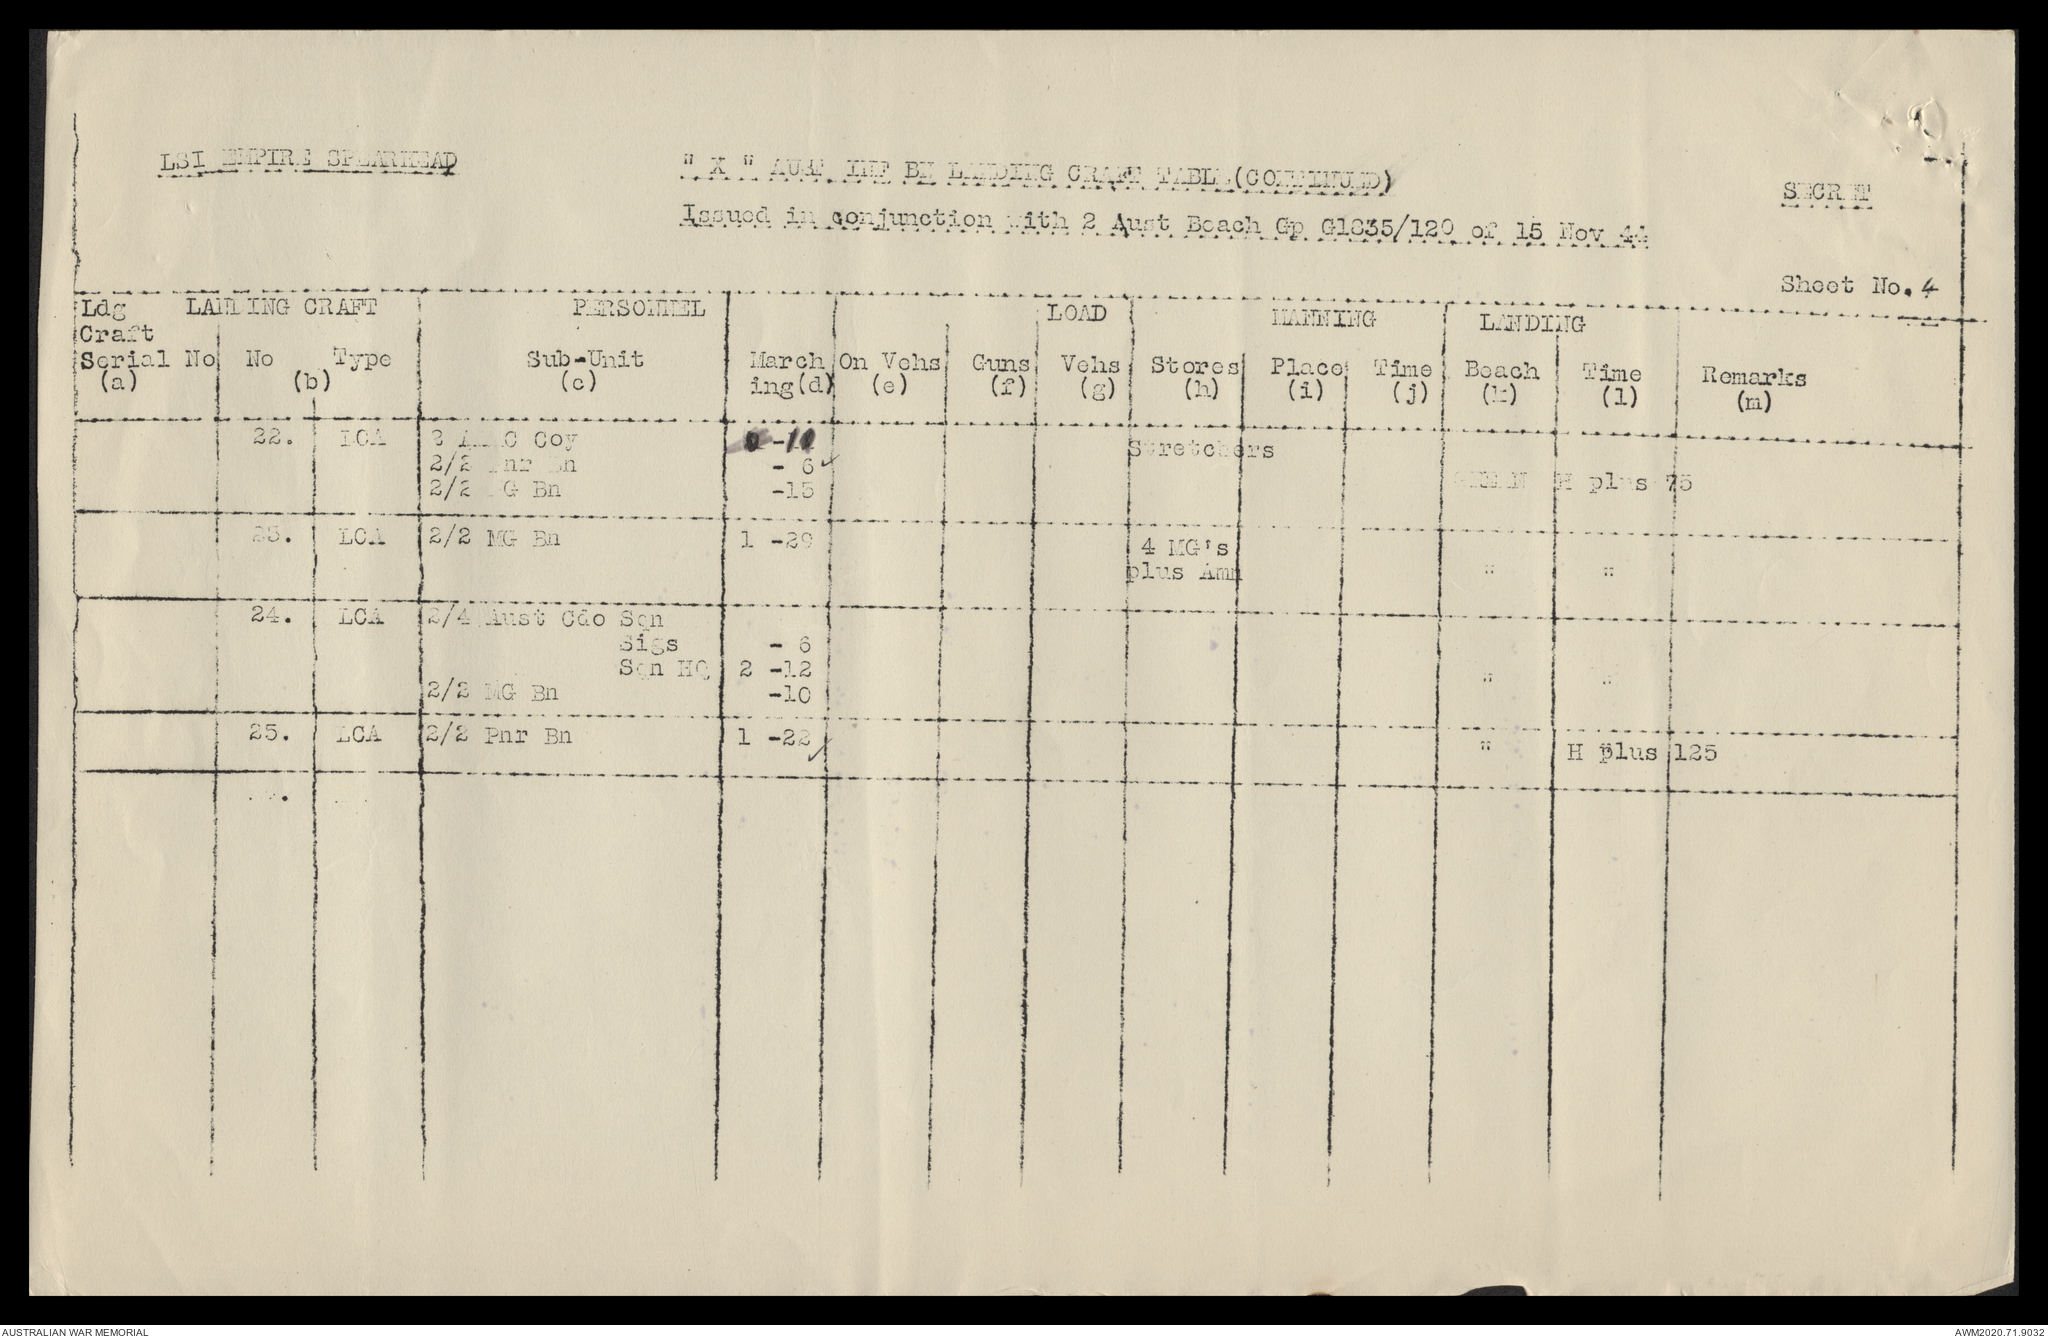 LSI EMPIRE SPEARHEAD
" X " AUST INF BN LANDING CRAFT TABLE(CONTINUED)
SECRET
Issued in conjunction with 2 Aust Beach Gp G1835/120 of 15 Nov 44
Sheet No. 4
Ldg LANDING CRAFT PERSONNEL LOAD MANNING LANDING
Craft
Serial No No Type Sub-Unit March On Vehs Guns Vehs Stores Place Time Beach Time Remarks
(a) (b) (c) ing(d) (e) (f) (g) (h) (i) (j) (k) (l) (m)
22. LCA Coy Stretchers
2/2 Pnr Bn - 6 ✓
2/2 MG Bn -15 GREEN H plus 75
23. LCA 2/2 MG Bn 1 -29 4 MG's
plus Amn " "
24. LCA 2/4 Aust Cdo Sqn
Sigs - 6
Sqn HQ 2 -12 " "
2/2 MG Bn -10
25. LCA 2/2 Pnr Bn 1 -22 ✓ " H plus 125
AUSTRALIAN WAR MEMORIAL
AWM2020.71.9032